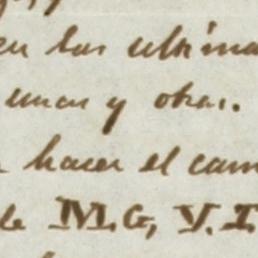 en las ultima
unas y otras.
hacer el cam
de M.G, V.I.